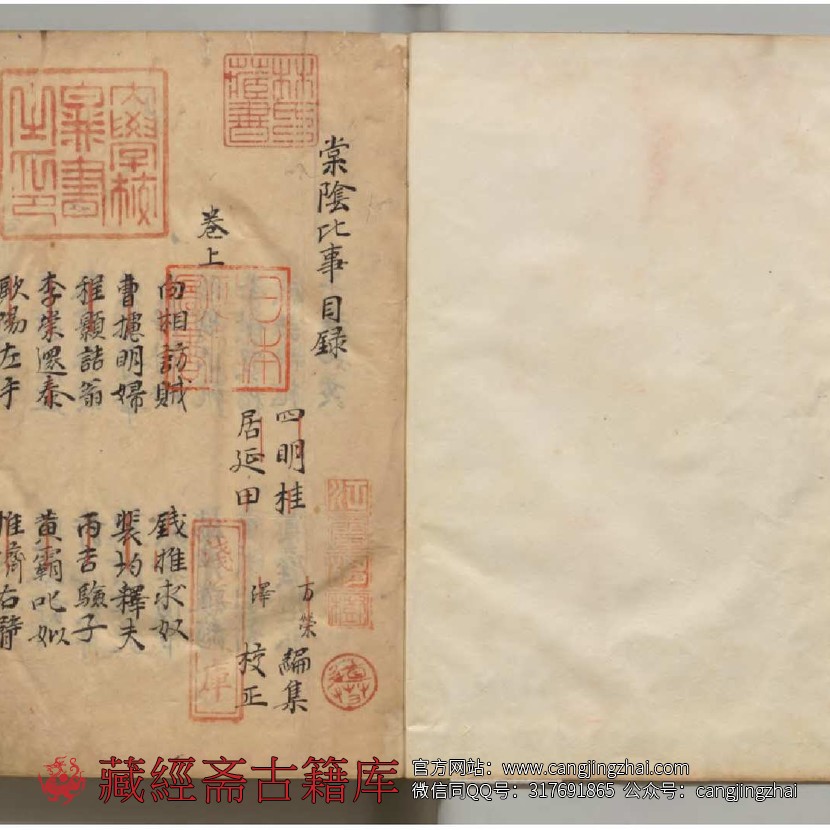 棠陰比事目録
四明桂 万榮 編集
居延田 澤 校正
卷上
向相訪賊 錢推求奴
曹攄明婦 裴均釋夫
程顥詰翁 丙吉驗子
李崇還泰 黄霸叱姒
歐陽左手 惟濟右臂
林氏藏書
大學校
之印
日本
庫
藏經斋古籍库
官方网站：www.cangjingzhai.com
微信同QQ号：317691865 公众号：cangjingzhai